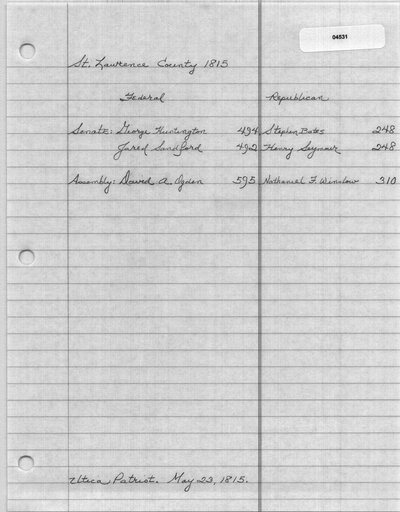 04531
St. Lawrence County 1815
Federal Republican
Senate: George Huntington 494 Stephen Bates 248
Jared Sandford 492 Henry Seymour 248
Assembly: David A. Ogden 595 Nathaniel F. Winslow 310
Utica Patriot. May 23, 1815.